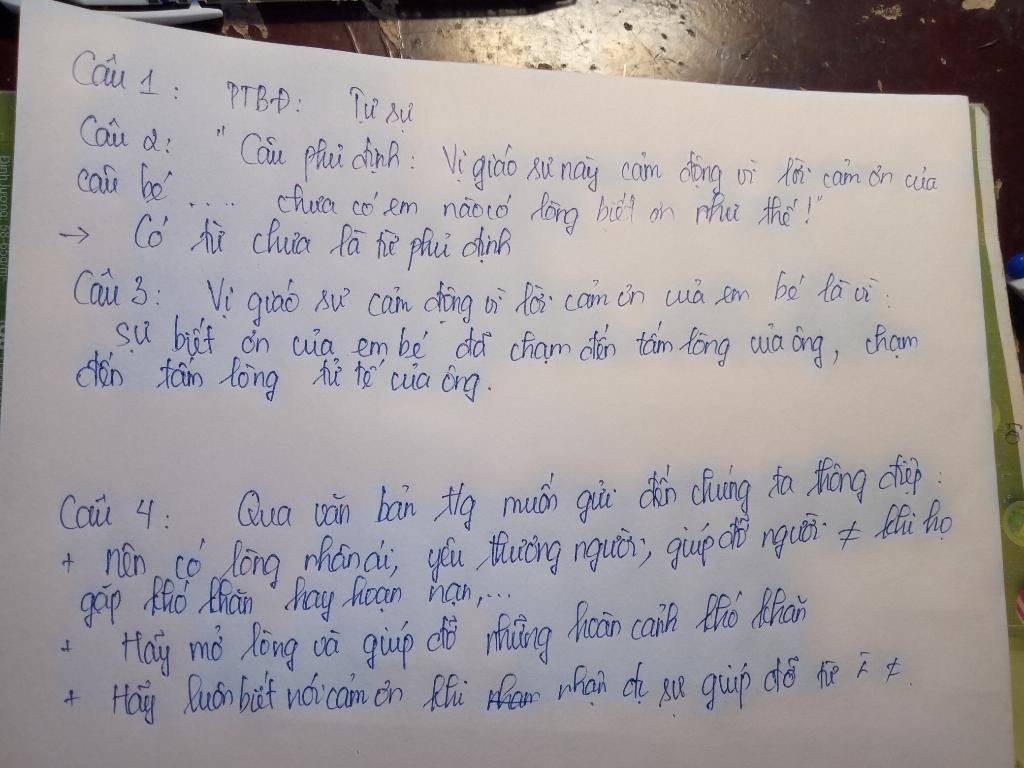 Câu 1: PTBĐ: Tự sự
Câu 2: " Câu phủ định: Vị giáo sư này cảm động vì lời cảm ơn của
cậu bé .... chưa có em nào có lòng biết ơn như thế!"
→ Có từ chưa là từ phủ định
Câu 3: Vị giáo sư cảm động vì lời cảm ơn của em bé là vì:
sự biết ơn của em bé đã chạm đến tấm lòng của ông, chạm
đến tấm lòng tử tế của ông.
Câu 4: Qua văn bản t/g muốn gửi đến chúng ta thông điệp:
+ Nên có lòng nhân ái, yêu thương người, giúp đỡ người ≠ khi họ
gặp khó khăn hay hoạn nạn,...
+ Hãy mở lòng và giúp đỡ những hoàn cảnh khó khăn
+ Hãy luôn biết nói cảm ơn khi nhận đc sự giúp đỡ từ ≠.